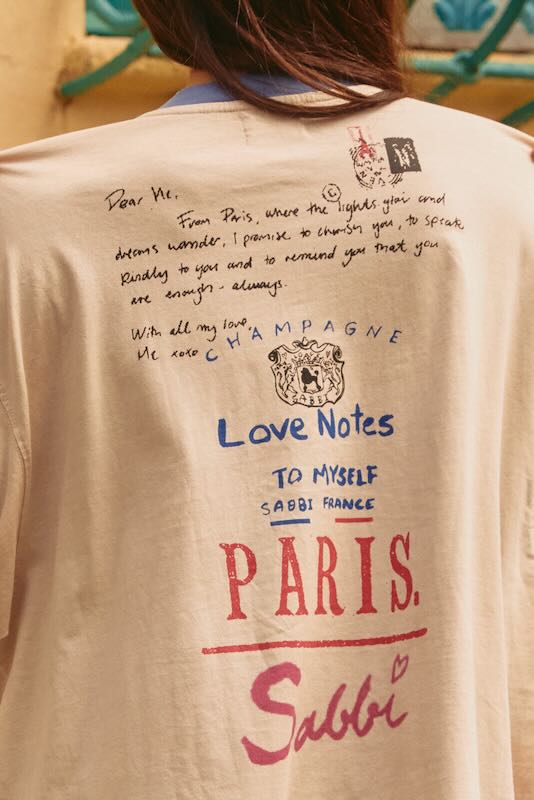 Dear Me,
From Paris, where the lights glow and
dreams wander, I promise to cherish you, to speak
kindly to you and to remind you that you
are enough - always.
With all my love,
Me xoxo
CHAMPAGNE
SABBI
Love Notes
TO MYSELF
SABBI FRANCE
PARIS.
Sabbi